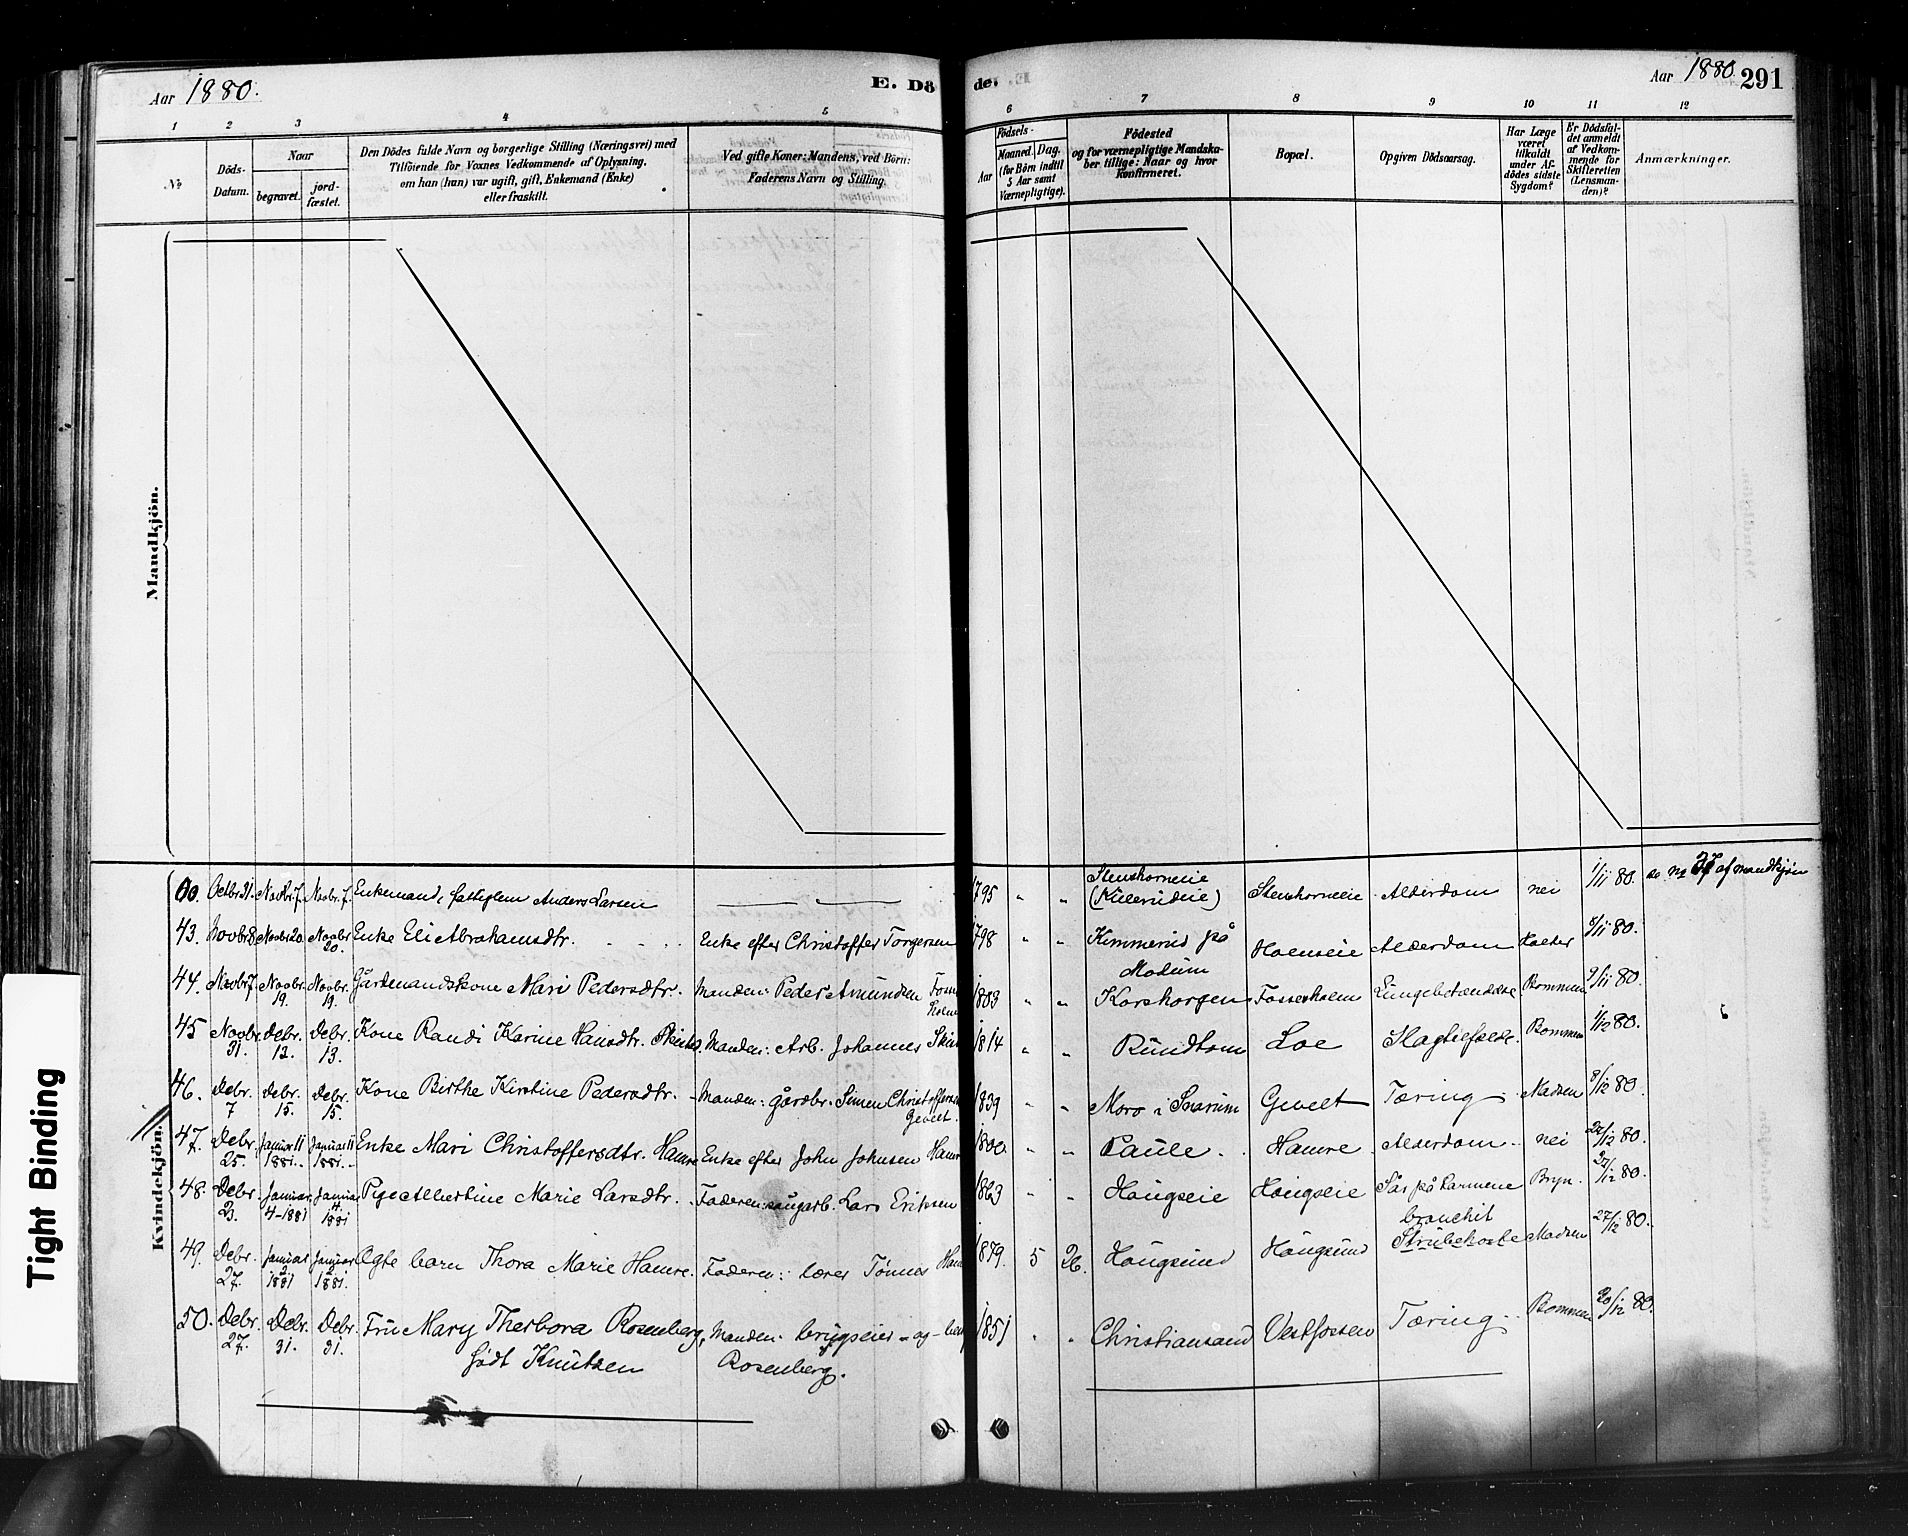 Aar 1880.
E. Dö
de.
Aar 1880. 291
1 2 3 4 5 6 7 8 9 10 11 12
No
Döds-Datum.
Naar
begravet.
jord-fæstet.
Den Dödes fulde Navn og borgerlige Stilling (Næringsvei) med
Tilföiende for Voxnes Vedkommende af Oplysning,
om han (hun) var ugift, gift, Enkemand (Enke)
eller fraskilt.
Ved gifte Koner: Mandens, ved Börn:
Faderens Navn og Stilling.
Födsels-
Aar
Maaned. Dag.
(for Börn indtil
5 Aar samt
Værnepligtige).
Födested
og for værnepligtige Mandska-
ber tillige: Naar og hvor
konfirmeret.
Bopæl.
Opgiven Dödsaarsag.
Har Læge
været
tilkaldt
under Af-
dödes sidste
Sygdom?
Er Dödsfal-
det anmeldt
af Vedkom-
mende for
Skifteretten
(Lensman-
den)?
Anmærkninger.
Mandkjön.
Kvindekjön.
Octbr 31. Novbr. 7. Novbr. 7. Enkemand, fattiglem Anders Larsen 1795 " " Stenshorneie (Kulerudeie) Stenshorneie Alderdom nei 1/11 80. se no 37 af mandkjön
43. Novbr 8. Novbr 20. Novbr 20. Enke Eli Abrahamsdtr. Enke efter Christoffer Torgersen 1798 " " Kimmerud på Modum Holmseie Alderdom Holter 8/11 80.
44. Novbr 7. Novbr. 19. Novbr. 19. Gårdmandskone Mari Pedersdtr. Manden: Peder Amundsen 1803 " " Korshorgen Fossesholm Lungebetændelse Bommen 9/11 80.
45 Novbr. 31. Debr. 13. Debr. 13. Kone Randi Karine Hansdtr. Manden: Arb. Johannes 1814 " " Rundtom Loe Slagtilfælde. Bommen 1/12 80.
46. Debr. 7 Debr. 15. Debr. 15. Kone Birthe Kirstine Pedersdtr. Manden: gårdbr. Simen Christoffersen Gevelt. 1839 " " Moro i Snarum Gevelt Tæring Madsen 8/12 80.
47. Debr. 25. Januar 11 1881. Januar 11 1881. Enke Mari Christoffersdtr. Hamre Enke efter John Johnsen Hamre 1800. " " Paule. Hamre Alderdom nei 27/12 80.
48. Debr. 23. Januar 4-1881 Januar 4 1881 Pige Albertine Marie Larsdtr. Faderen: saugarb. Lars Eriksen 1863 " " Hougseie Hougseie Sår på tarmene Bryn. 27/12 80.
49. Debr. 27. Januar 3 1881 Januar 3 1881. Ægte barn Thora Marie Hamre. Faderen: lærer Tønnes 1879. 5 26. Hougsund Hougsund bronchit Strubehoste Madsen 27/12 80.
50. Debr. 27. Debr. 31. Debr. 31. Fru Mary Therbora Rosenberg, født Knutsen Manden: brugseier Rosenberg. 1851 " " Christiansand Vestfossen Tæring Bommen 30/12 80.
Tight Binding